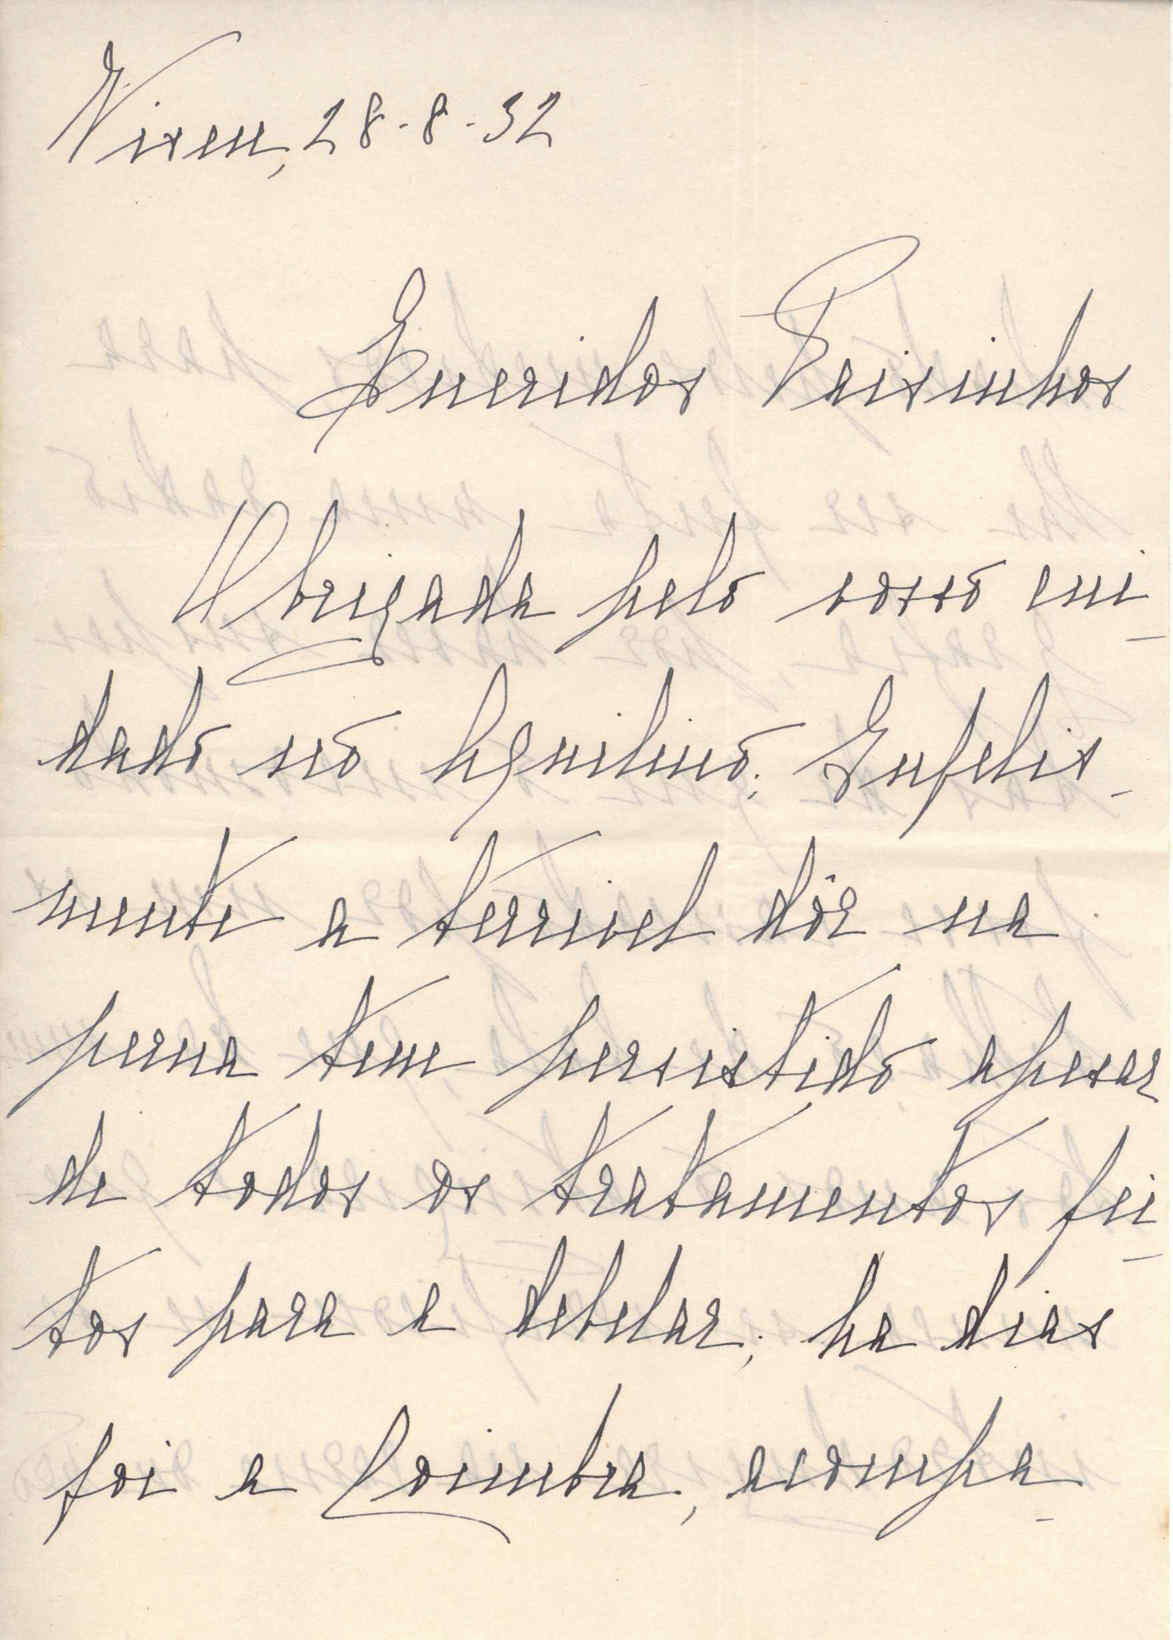 Vizeu, 28-8-32
Queridos Paisinhos
Obrigada pelo vosso cui-
dado no Aquilino. Infeliz-
mente a terrivel dôr na
perna tem persistido apesar
de todos os tratamentos fei-
tos para a debelar; ha dias
foi a Coimbra, acompa-